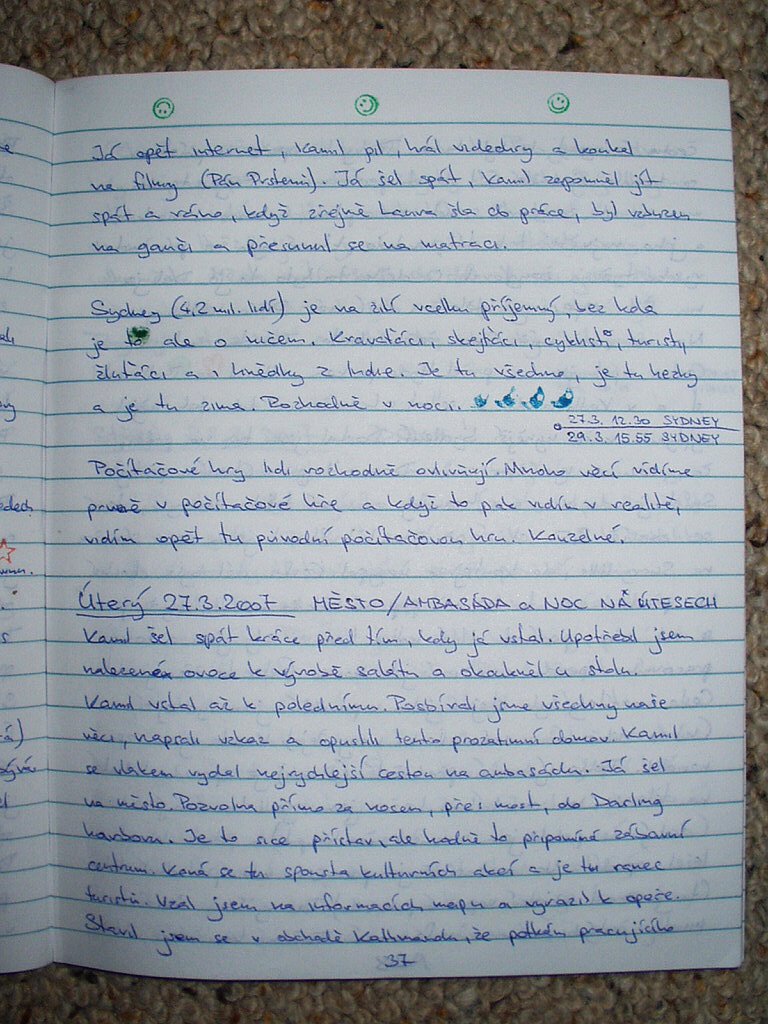 Já opět internet, Kamil pil, hrál videohry a koukal
na filmy (Pán Prstenů). Já šel spát, Kamil zapomněl jít
spát a ráno, když zřejmě Laura šla do práce, byl vzbuzen
na gauči a přesunul se na matraci.
Sydney (4,2 mil. lidí) je na žití vcelku příjemný, bez kola
je to ale o ničem. Kravaťáci, skejťáci, cyklisti, turisti,
žluťáci a i hnědky z Indie. Je tu všechno, je tu hezky
a je tu zima. Rozhodně v noci.
27.3. 12.30 SYDNEY
29.3. 15.55 SYDNEY
Počítačové hry lidi rozhodně ovlivňují. Mnoho věcí vidíme
prvně v počítačové hře a když to pak vidím v realitě,
vidím opět tu původní počítačovou hru. Kouzelné.
Úterý 27.3.2007 MĚSTO/AMBASÁDA a NOC NA ÚTESECH
Kamil šel spát krátce před tím, kdy já vstal. Upotřebil jsem
nalezené ovoce k výrobě salátu a okouněl u stolu.
Kamil vstal až k polednímu. Posbírali jsme všechny naše
věci, napsali vzkaz a opustili tento prozatímní domov. Kamil
se vlakem vydal nejrychlejší cestou na ambasádu. Já šel
na město. Pozvolna přímo za nosem, přes most, do Darling
harboru. Je to sice přístav, ale hodně to připomíná zábavní
centrum. Koná se tu spousta kulturních akcí a je tu
turistů. Vzal jsem na informacích mapu a vyrazil k opeře.
Stavil jsem se v obchodě Kathmandu, že potkám pracujícího
37